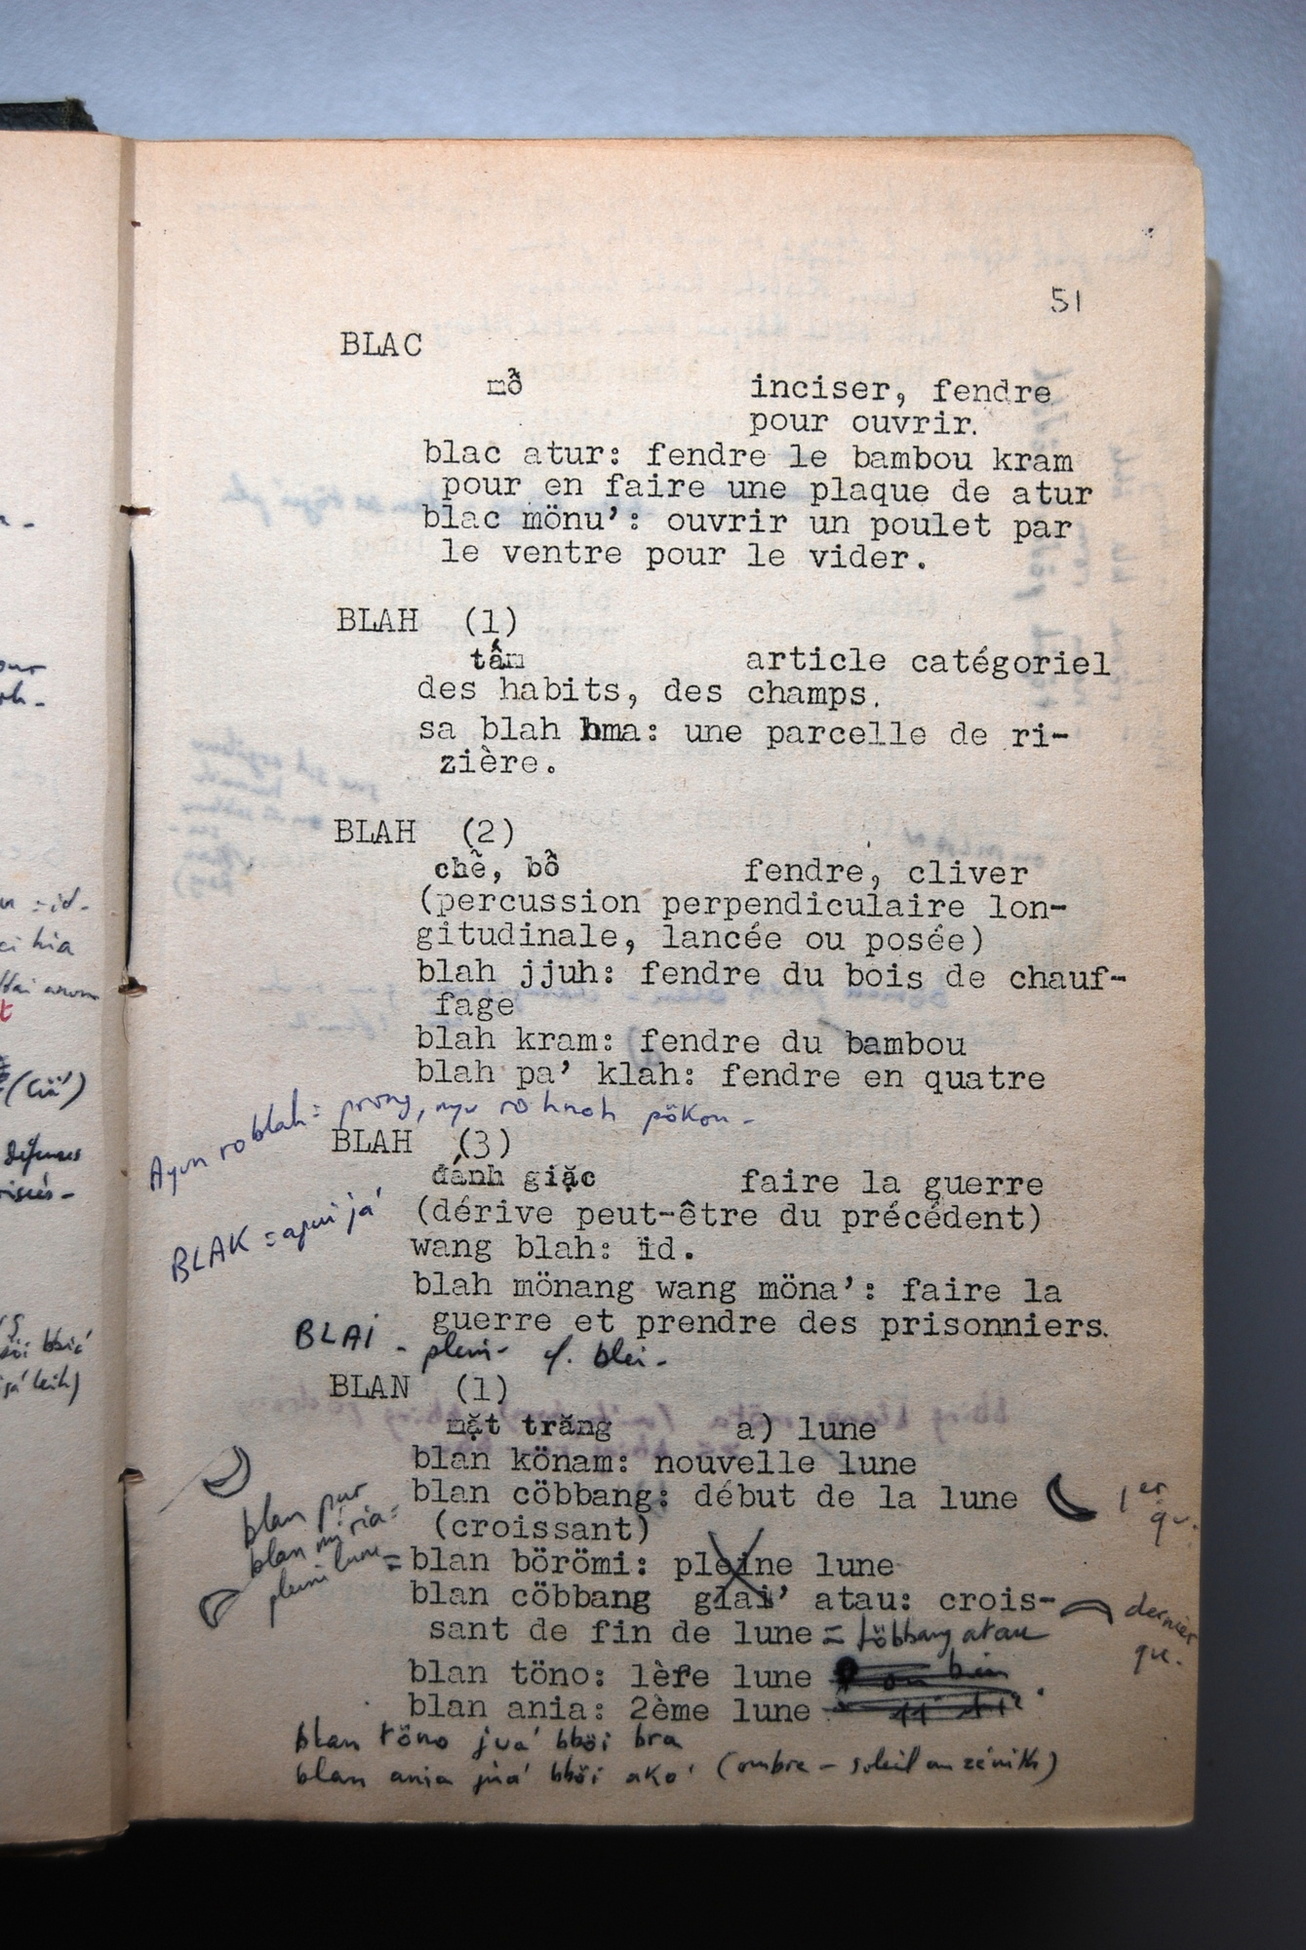 51
BLAC
mổ inciser, fendre
pour ouvrir.
blac atur: fendre le bambou kram
pour en faire une plaque de atur
blac mönu’: ouvrir un poulet par
le ventre pour le vider.
BLAH (1)
tấm article catégoriel
des habits, des champs.
sa blah hma: une parcelle de ri-
zière.
BLAH (2)
chẽ, bổ fendre, cliver
(percussion perpendiculaire lon-
gitudinale, lancée ou posée)
blah jjuh: fendre du bois de chauf-
fage
blah kram: fendre du bambou
blah pa’ klah: fendre en quatre
Ayun ro blah = prong, ro hnoh pökon -
BLAH (3)
đánh giặc faire la guerre
(dérive peut-être du précédent)
BLAK = apui já
wang blah: id.
blah mönang wang möna’: faire la
guerre et prendre des prisonniers.
BLAI - plein - cf. blei -
BLAN (1)
mặt trăng a) lune
blan könam: nouvelle lune
blan cöbbang: début de la lune 1er qu.
(croissant)
blan pur
blan mi ria =
pleine lune
= blan börömi: pleine lune
blan cöbbang glai’ atau: crois- dernier
sant de fin de lune = többang atau qu.
blan töno: 1ère lune
blan ania: 2ème lune
blan töno juá bböi bra
blan ania juá bböi ako' (ombre - soleil au zénith)
(ciă')
défenses
= id-